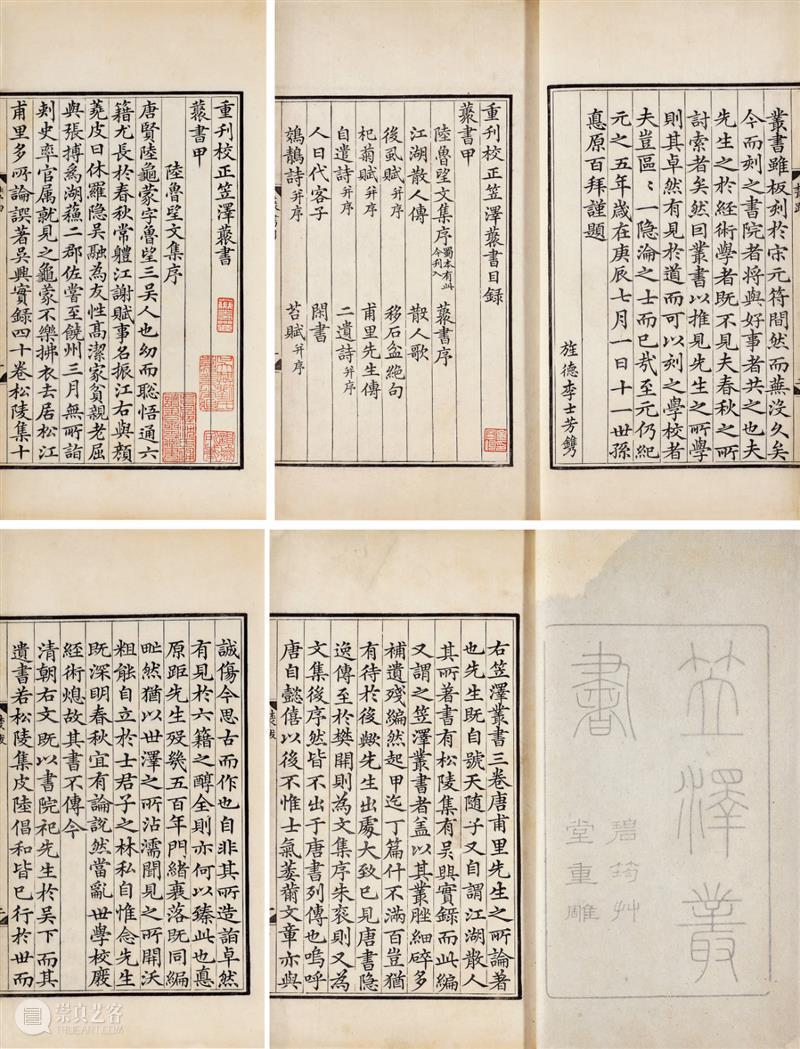 叢書雖板刻於宋元符間然而蕪沒久矣
今而刻之書院者將與好事者共之也夫
先生之於經術學者既不見夫春秋之所
討索者矣然因叢書以推見先生之所學
則其卓然有見於道而可以刻之學校者
夫豈區〻一隐淪之士而已㢤至元仍紀
元之五年歲在庚辰七月一日十一世孫
悳原百拜謹題
旌德李士芳鐫
重刊校正笠澤叢書目録
叢書甲
陸魯望文集序 蜀本有此今刋入 叢書序
江湖散人傳 散人歌
後虱賦并序 移石盆絶句
杞菊賦并序 甫里先生傳
自遣詩并序 二遺詩并序
人日代客子 閑書
鵁鶄詩并序 苔賦并序
重刊校正笠澤叢書
叢書甲
陸魯望文集序
唐賢陸龜蒙字魯望三吴人也幼而聡悟通六
籍尤長於春秋常軆江謝賦事名振江右與顏
蕘皮日休羅隐吴融為友性高潔家貧親老屈
與張摶為湖蘓二郡佐嘗至饒州三月無所詣
刺史率官属就見之龜蒙不樂拂衣去居松江
甫里多所論譔著吴興實録四十卷松陵集十
笠澤叢
書
碧筠艸
堂重雕
右笠澤叢書三卷唐甫里先生之所論著
也先生既自號天随子又自謂江湖散人
其所著書有松陵集有吴興實録而此編
又謂之笠澤叢書者盖以其叢脞細碎多
補遺殘編然起甲迄丁篇什不滿百豈猶
有待於後歟先生出處大致已見唐書隐
逸傳至於樊開則為文集序朱衮則又為
文集後序然皆不出于唐書列傳也嗚呼
唐自懿僖以後不惟士氣萎薾文章亦與
誠傷今思古而作也自非其所造詣卓然
有見於六籍之醇全則亦何以臻此也悳
原距先生殁幾五百年門緒衰落既同編
甿然猶以世澤之所沾濡聞見之所開沃
粗能自立於士君子之林私自惟念先生
既深明春秋宜有論説然當亂世學校廢
經術熄故其書不傳今
清朝右文既以書院祀先生於吴下而其
遺書若松陵集皮陸倡和皆已行於世而
崇真艺客
TRUEART.COM